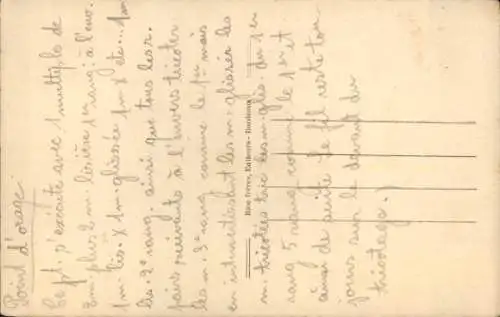 Point d'orage.
Ce pt. s'exécute avec 1 multiple de
2 m. plus 2 m. lisière 1er rang: à l'env.
1 m. lis. x 1 m. glissée 1 m. x etc... 1 m.
lis. 2e rang ainsi que tous les r.
pairs suivants à l'envers tricoter
les m. 3e rang comme le 1er mais
en intervertissant les m. glissées les
m. tricotées tric. les m. glis. du 1er
rang 5 rang comme le 1er et
ainsi de suite le fil reste tou-
jours sur le devant du
tricotage.)
Bloc frères, Editeurs - Bordeaux